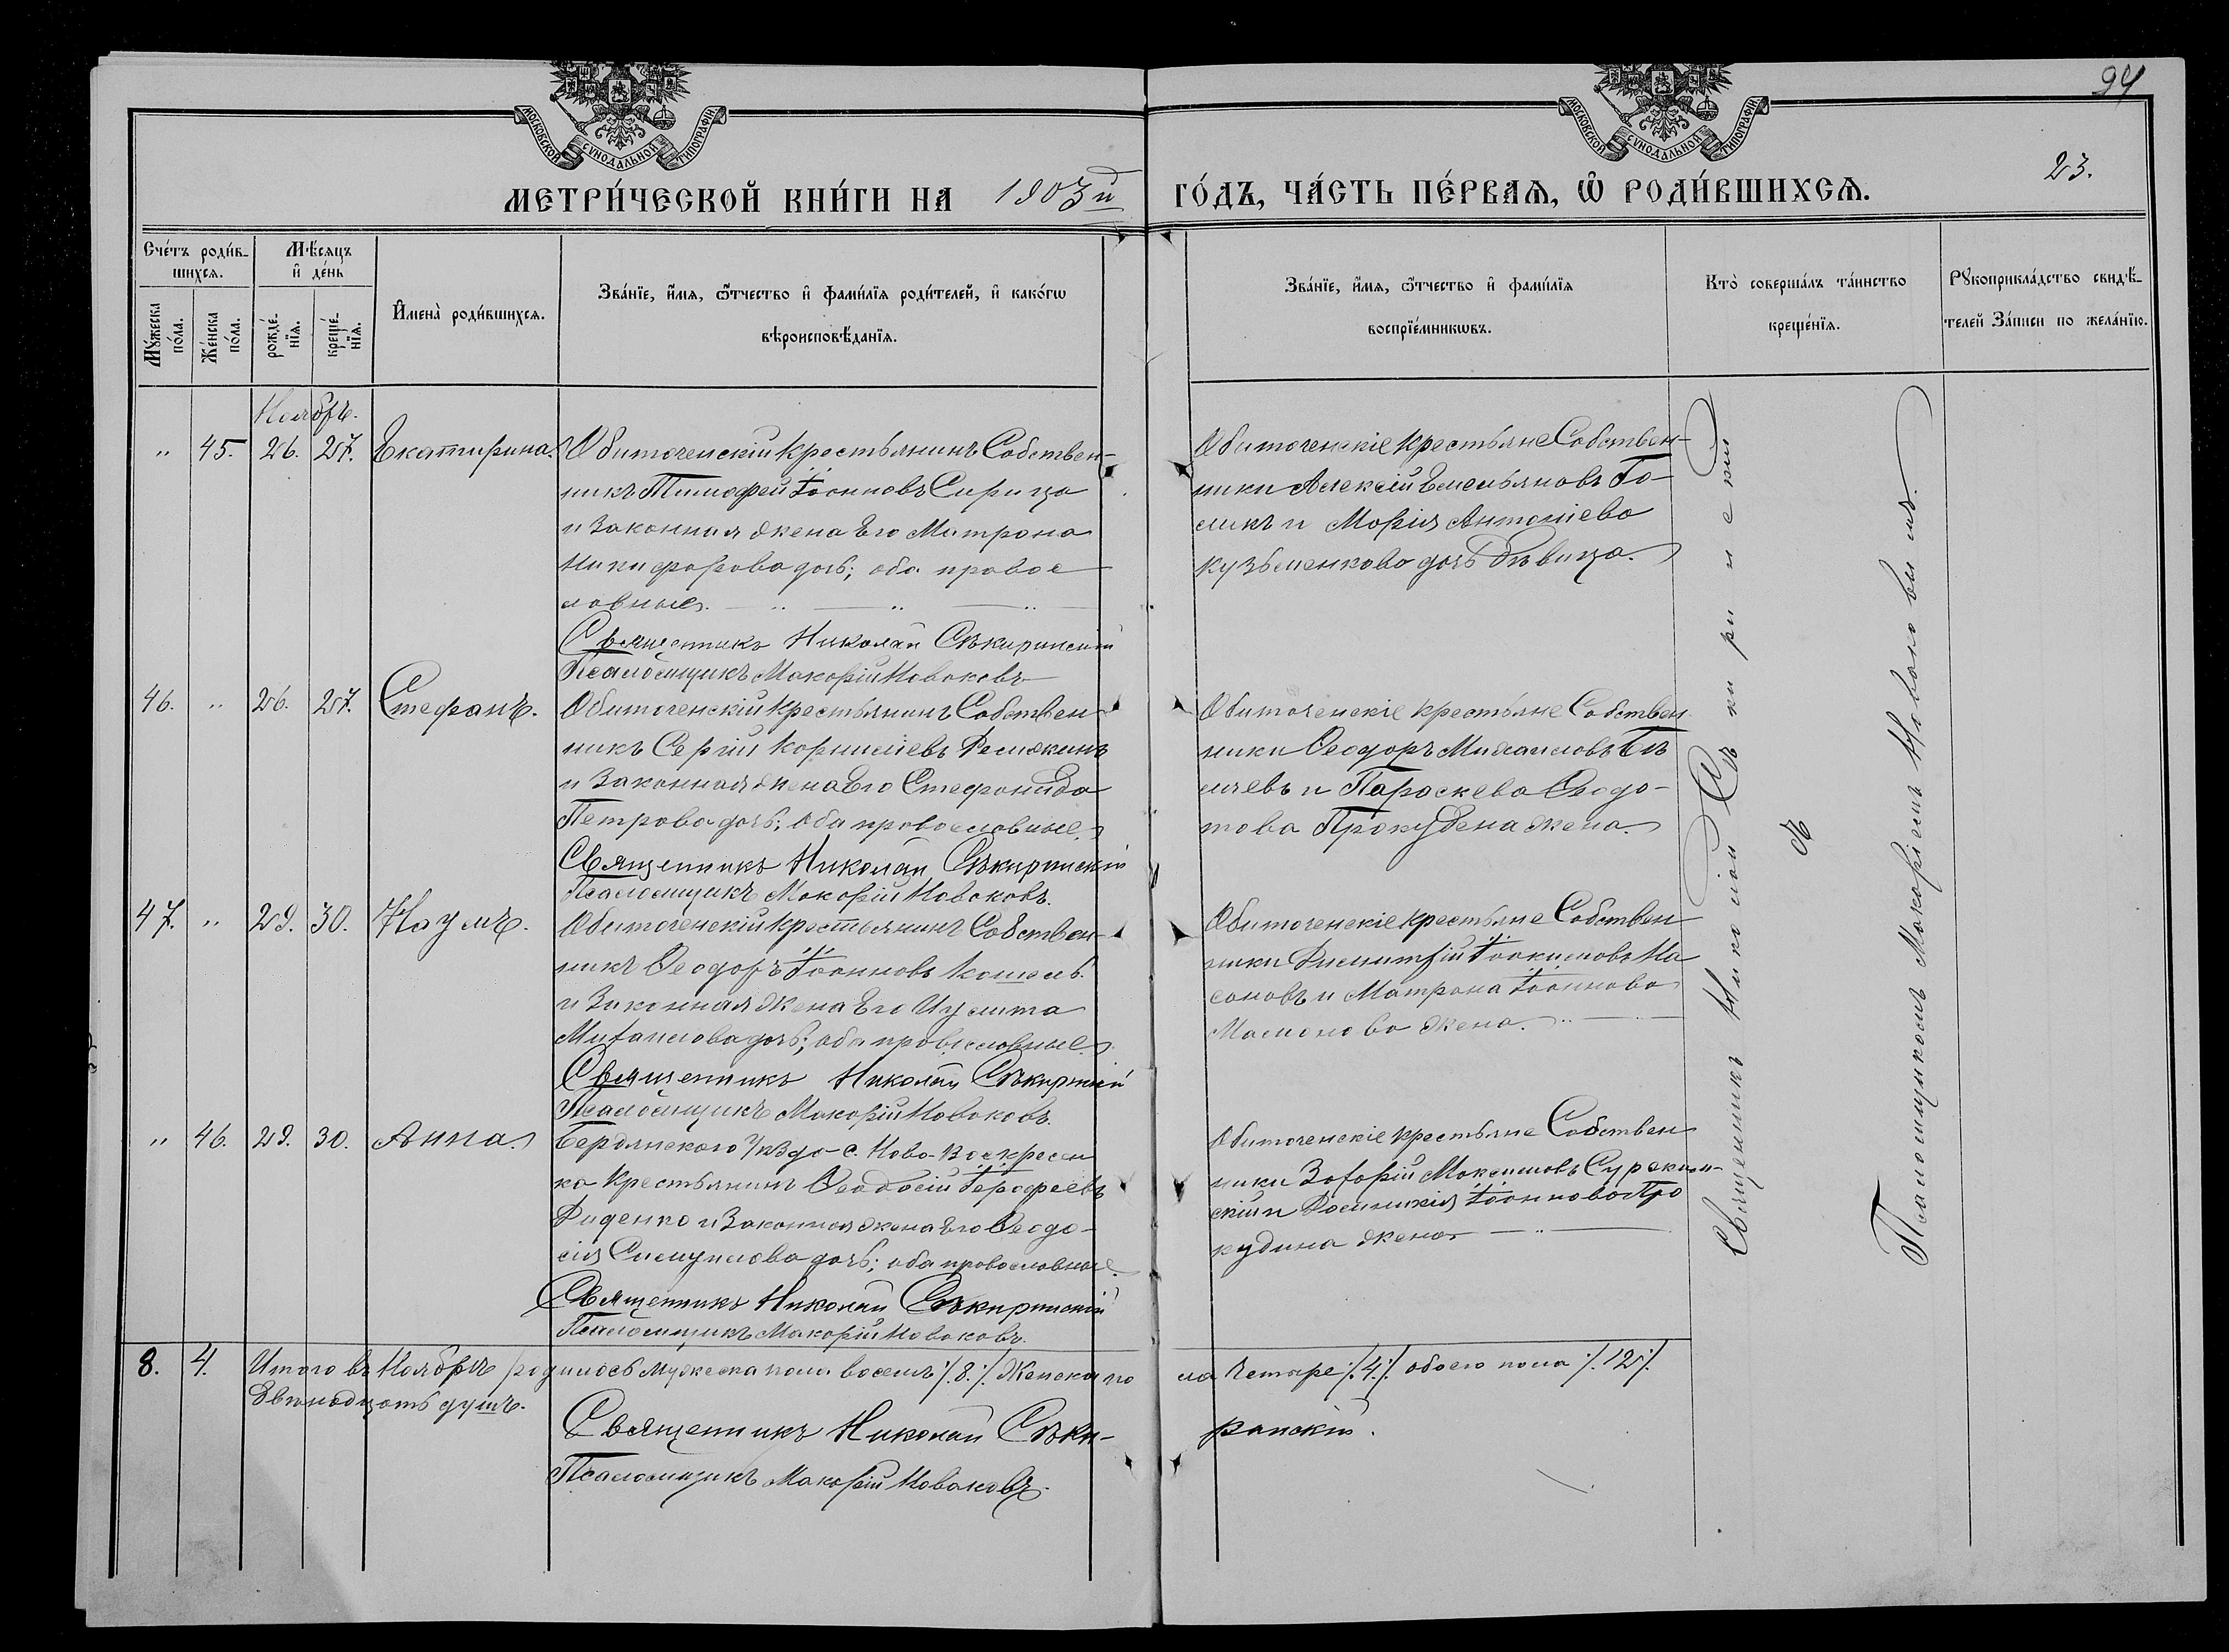 94
МОСКОВСКОЙ СѴНОДАЛЬНОЙ ТИПОГРАФІИ
МОСКОВСКОЙ СѴНОДАЛЬНОЙ ТИПОГРАФІИ
23.
МЕТРИ́ЧЕСКОЙ КНИ́ГИ НА 1903й ГО́ДЪ, ЧА́СТЬ ПЕ́РВАѦ, Ѡ҆ РОДИ́ВШИХСѦ.
Сче́тъ роди́в-
шихсѧ.
Мꙋжеска по́ла.
Же́нска по́ла.
Мѣ́сѧцъ
и҆ де́нь
рожде́-
нїѧ.
креще́-
нїѧ.
И҆мена̀ роди́вшихсѧ.
Зва́нїе, и҆́мѧ, ѻ҆́тчество и҆ фами́лїѧ роди́телей, и҆ како́гѡ
вѣроисповѣ́данїѧ.
Зва́нїе, и҆́мѧ, ѻ҆́тчество и҆ фами́лїѧ
воспрїе́мникѡвъ.
Кто̀ соверша́лъ та́инство
креще́нїѧ.
Рꙋкоприкла́дство свидѣ́-
телей За́писи по жела́нїю.
Ноябрь.
" 45. 26. 27. Екатирина. Обиточенскій крестьянинъ Собствен-
никъ Тимофей Іоанновъ Сирица
и Законная жена Его Матрона
Никифорова дочь; оба право
славные.
Священникъ Николай Сѣкиринскій
Псаломщикъ Макорій Новаковъ
Обиточенскіе крестьяне Собствен-
ники Алексій Емельяновъ Го-
ликъ и Марія Антоніева
Кузьменкова дочь Дѣвица.
46. " 26. 27. Стефанъ. Обиточенскій крестьянинъ Собствен
никъ Сергій Корниліевъ
и Законная жена Его Стефанида
Петрова дочь; оба православные.
Священникъ Николай Сѣкиринскій
Псаломщикъ Макорій Новаковъ.
Обиточенскіе крестьяне Собствен
ники Ѳеодоръ Михаиловъ Бѣ
ляевъ и Параскева Ѳеодо-
това Прокудена жена.
47. " 29. 30. Наумъ. Обиточенскій крестьянинъ Собствен-
никъ Ѳеодоръ Іоанновъ Кошель
и Законная жена Его Иулита
Михаилова дочь; оба православные.
Священникъ Николай Сѣкиринскій
Псаломщикъ Макорій Новаковъ.
Обиточенскіе крестьяне Собствен
ники Димитрій Іоакимовъ Ма
соновъ и Матрона Іоаннова
Мамонова жена.
" 46. 29. 30. Анна. Бердянского Уѣзда с. Ново-Воскресен
ка Крестьянинъ Ѳеодосій Іероѳеевъ
Диденко и Законная жена Его Ѳеодо-
сія Самуилова дочь; оба православные.
Священникъ Николай Сѣкиринскій
Псаломщикъ Макорій Новаковъ.
Обиточенскіе крестьяне Собствен
ники Захарій Максимовъ
скій и Домникія Іоаннова Про
кудина жена
Священникъ Николай Сѣкиринскій
съ
Псаломщикомъ Макаріемъ Новаковымъ.
8. 4. Итого въ Ноябрѣ родилось мужеска пола восемь /.8./. Женска по ла четыре /.4./. обоего пола /.12./.
Двѣнадцать душъ.
Священникъ Николай Сѣки- ринскій.
Псаломщикъ Макорій Новаковъ.